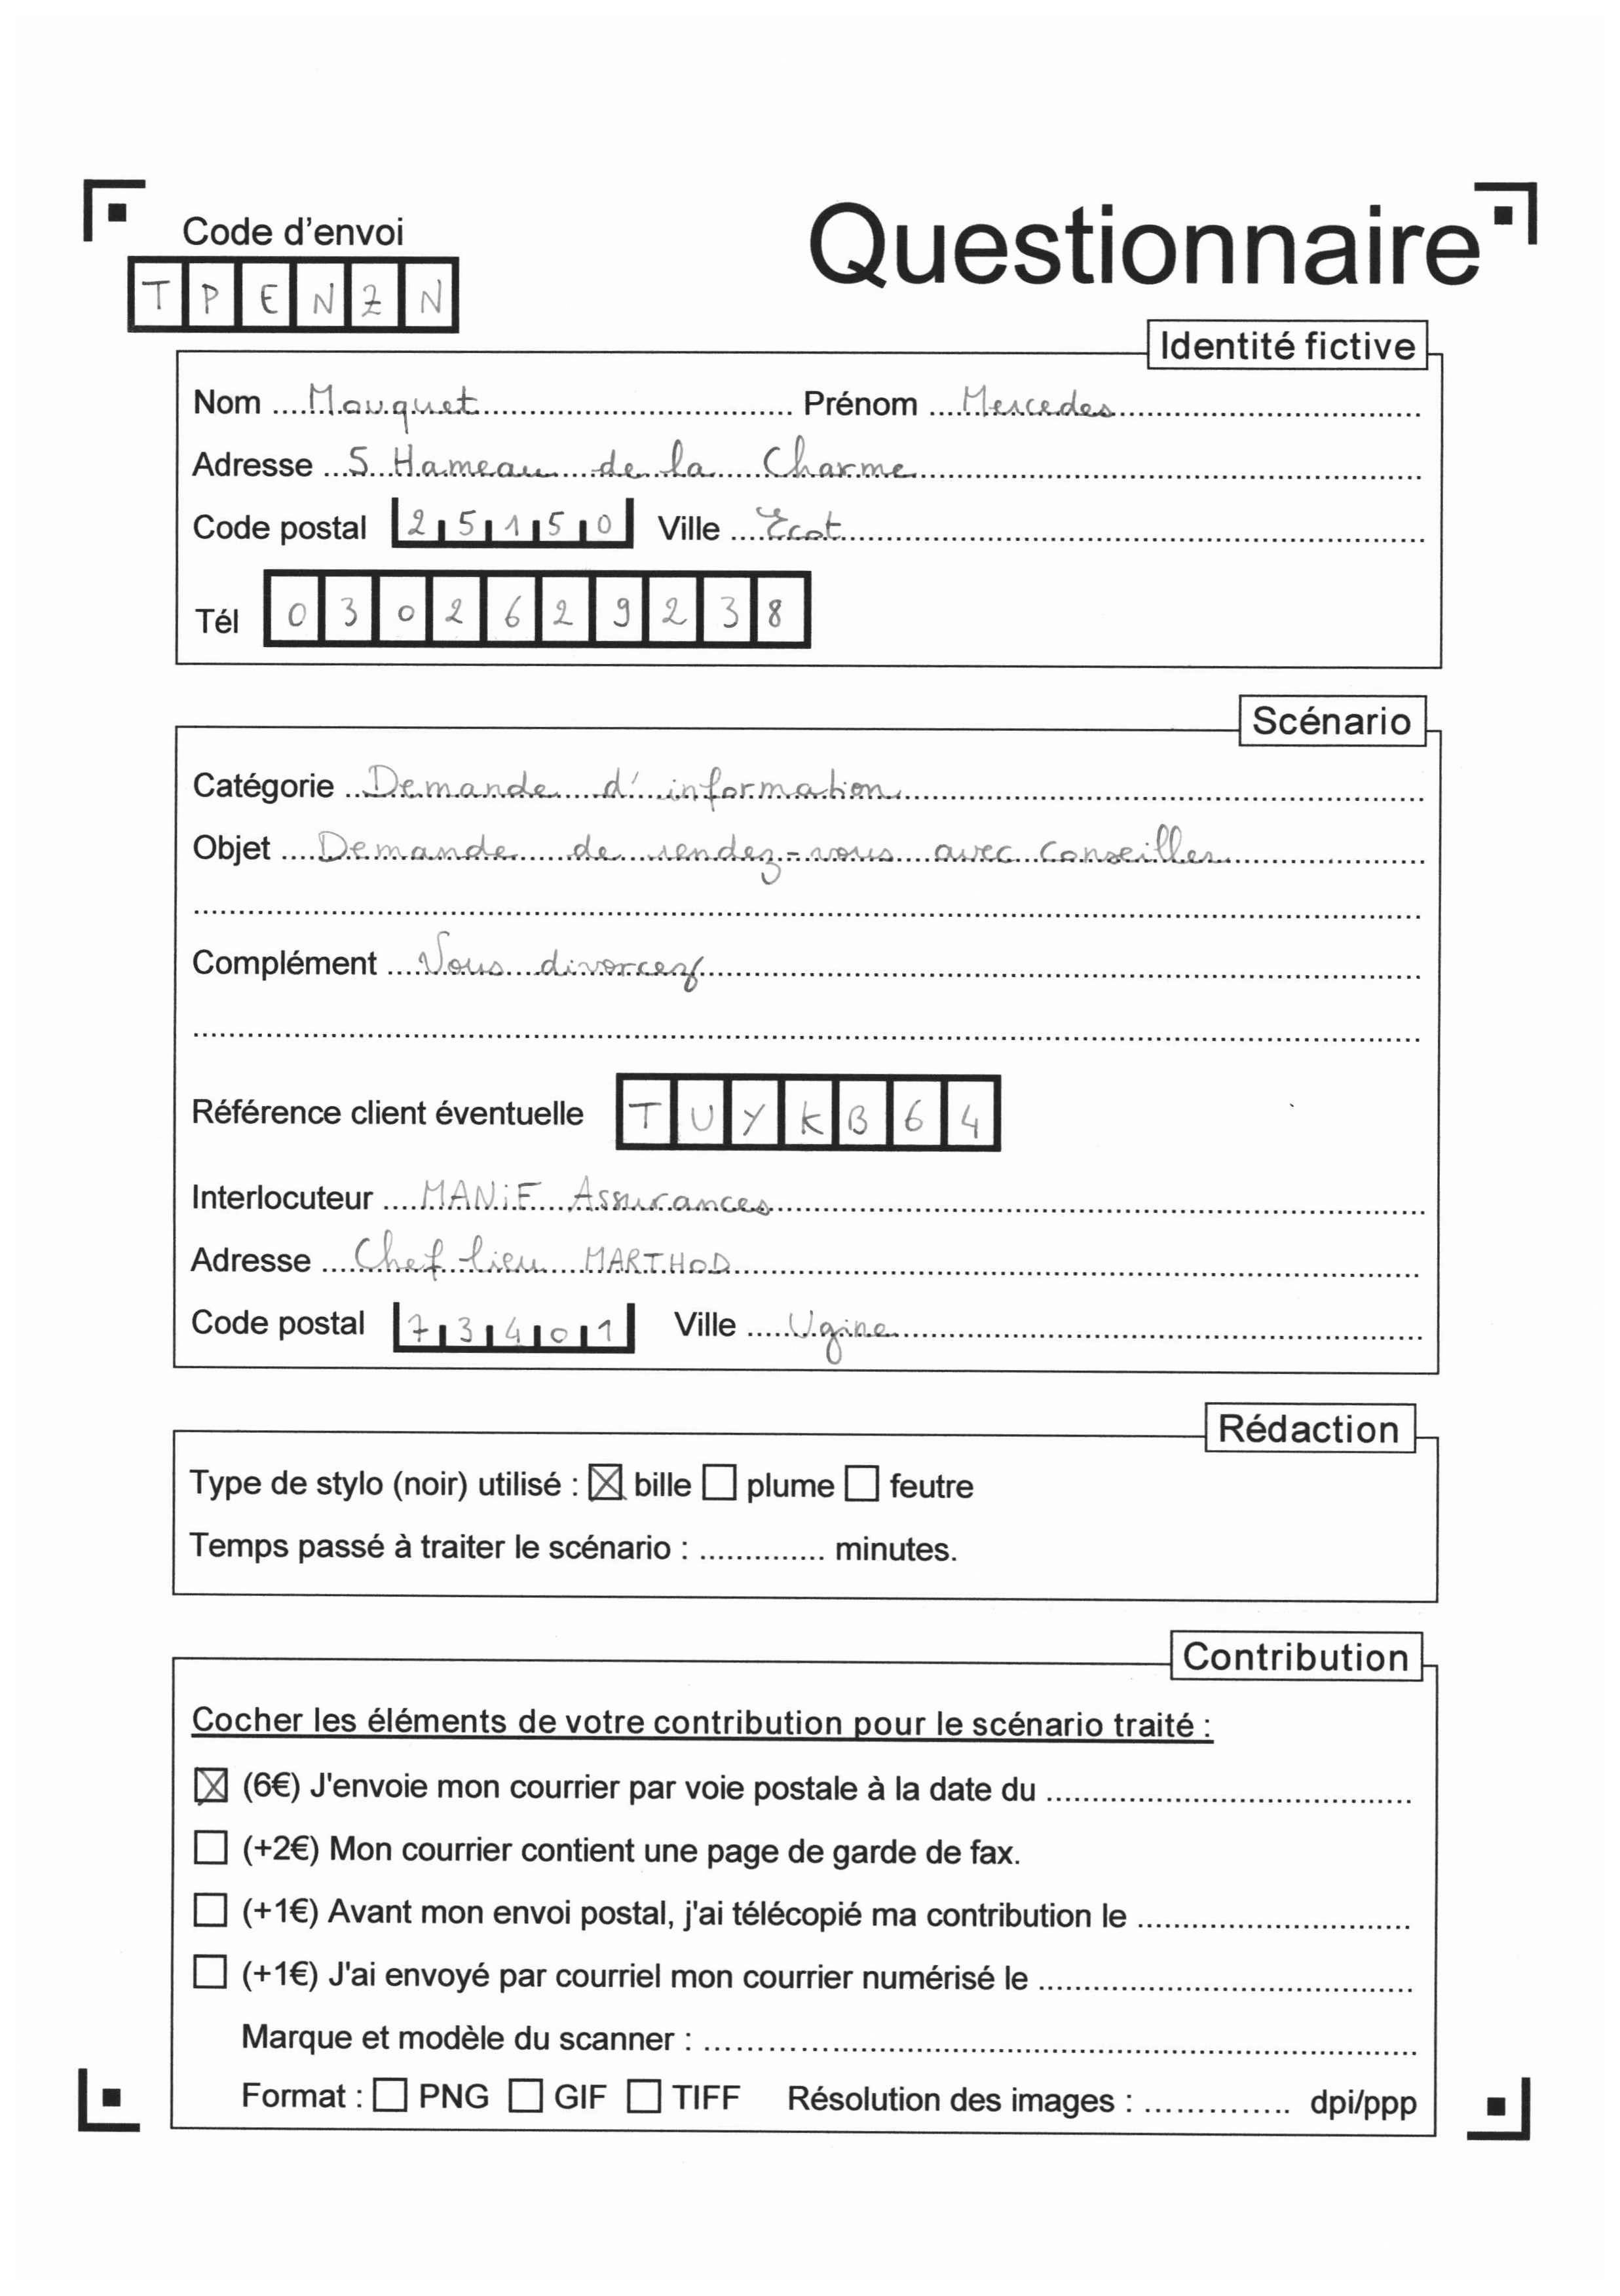 Code d'envoi
Questionnaire
T P E N Z N
Identité fictive
Nom Mouquet Prénom Mercedes
Adresse 5 Hameau de la Charme
Code postal 25150 Ville Ecot
Tél 0302629238
Scénario
Catégorie Demande d'information
Objet Demande de rendez-vous avec conseiller
Complément Vous divorcez
Référence client éventuelle TUYKB64
Interlocuteur MANIF Assurances
Adresse Chef lieu MARTHOD
Code postal 73401 Ville Ugine
Rédaction
Type de stylo (noir) utilisé : ☒ bille ☐ plume ☐ feutre
Temps passé à traiter le scénario : .............. minutes.
Contribution
Cocher les éléments de votre contribution pour le scénario traité :
☒ (6€) J'envoie mon courrier par voie postale à la date du
☐ (+2€) Mon courrier contient une page de garde de fax.
☐ (+1€) Avant mon envoi postal, j'ai télécopié ma contribution le
☐ (+1€) J'ai envoyé par courriel mon courrier numérisé le
Marque et modèle du scanner :
Format : ☐ PNG ☐ GIF ☐ TIFF Résolution des images : .............. dpi/ppp